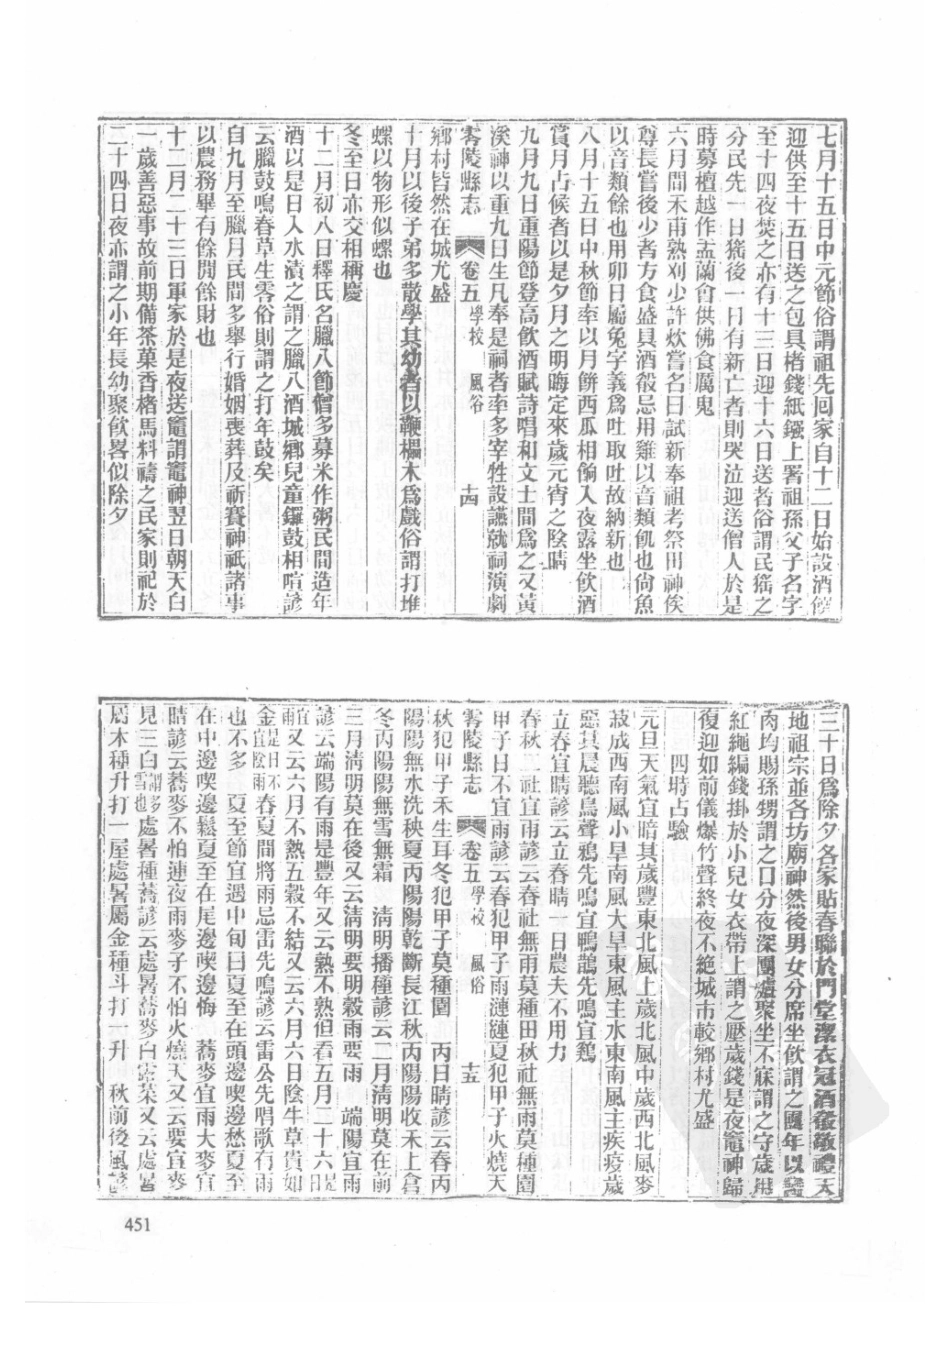 七月十五日中元節俗謂祖先囘家自十二日始設酒饌
迎供至十五日送之包具楮錢紙鏹上署祖孫父子名字
至十四夜焚之亦有十三日迎十六日送者俗謂民猺之
分民先一日猺後一日有新亡者則哭泣迎送僧人於是
時募檀越作盂蘭會供佛食厲鬼
六月間禾甫熟刈少許炊嘗名曰試新奉祖考祭田神俟
尊長嘗後少者方食盛具酒殽忌用雞以音類飢也尙魚
以音類餘也用卯日屬兔字義爲吐取吐故納新也
八月十五日中秋節率以月餅西瓜相餉入夜露坐飲酒
賞月占候者以是夕月之明晦定來歲元宵之陰晴
九月九日重陽節登高飲酒賦詩唱和文士間爲之又黃
溪神以重九日生凡奉是祠者率多宰牲設讌就祠演劇
零陵縣志 卷五 學校 風俗 十四
鄉村皆然在城尤盛
十月以後子弟多散學其幼者以鞭榻木爲戲俗謂打堆
螺以物形似螺也
冬至日亦交相稱慶
十二月初八日釋氏名臘八節僧多募米作粥民間造年
酒以是日入水漬之謂之臘八酒城鄉兒童鑼鼓相喧諺
云臘鼓鳴春草生零俗則謂之打年鼓矣
自九月至臘月民間多舉行婚姻喪葬及祈賽神祇諸事
以農務畢有餘閒餘財也
十二月二十三日軍家於是夜送竈謂竈神翌日朝天白
一歲善惡事故前期備茶菓香楮馬料禱之民家則祀於
二十四日夜亦謂之小年長幼聚飲畧似除夕
三十日爲除夕各家貼春聯於門堂潔衣冠酒殽敬禮天
地祖宗並各坊廟神然後男女分席坐飲謂之團年以
肉均賜孫甥謂之口分夜深團爐聚坐不寐謂之守歲用
紅繩編錢掛於小兒女衣帶上謂之壓歲錢是夜竈神歸
復迎如前儀爆竹聲終夜不絶城市較鄉村尤盛
四時占驗
元旦天氣宜晴其歲豐東北風上歲北風中歲西北風麥
菽成西南風小旱南風大旱東風主水東南風主疾疫歲
惡其晨聽鳥聲鴉先鳴宜鴨鵲先鳴宜鷄
立春宜晴諺云立春晴一日農夫不用力
春秋二社宜雨諺云春社無雨莫種田秋社無雨莫種園
甲子日不宜雨諺云春犯甲子雨漣漣夏犯甲子火燒天
零陵縣志 卷五 學校 風俗 十五
秋犯甲子禾生耳冬犯甲子莫種園 丙日晴諺云春丙
陽陽無水洗秧夏丙陽陽乾斷長江秋丙陽陽收禾上倉
冬丙陽陽無雪無霜 清明播種諺云二月清明莫在前
三月清明莫在後又云清明要明穀雨要雨 端陽宜雨
諺云端陽有雨是豐年又云熟不熟但看五月二十六日是
宜雨又云六月不熟五穀不結又云六月六日陰牛草貴如
金是日不宜陰雨 春夏間將雨忌雷先鳴諺云雷公先唱歌有雨
也不多 夏至節宜遇中旬曰夏至在頭邊喫邊愁夏至
在中邊喫邊鬆夏至在尾邊喫邊悔 蕎麥宜雨大麥宜
晴諺云蕎麥不怕連夜雨麥子不怕火燒天又云要宜麥
見三白謂多雪也 處暑種蕎諺云處暑蕎麥白露菜又云處暑
屬木種升打一屋處暑屬金種斗打一升 秋前後風諺
451